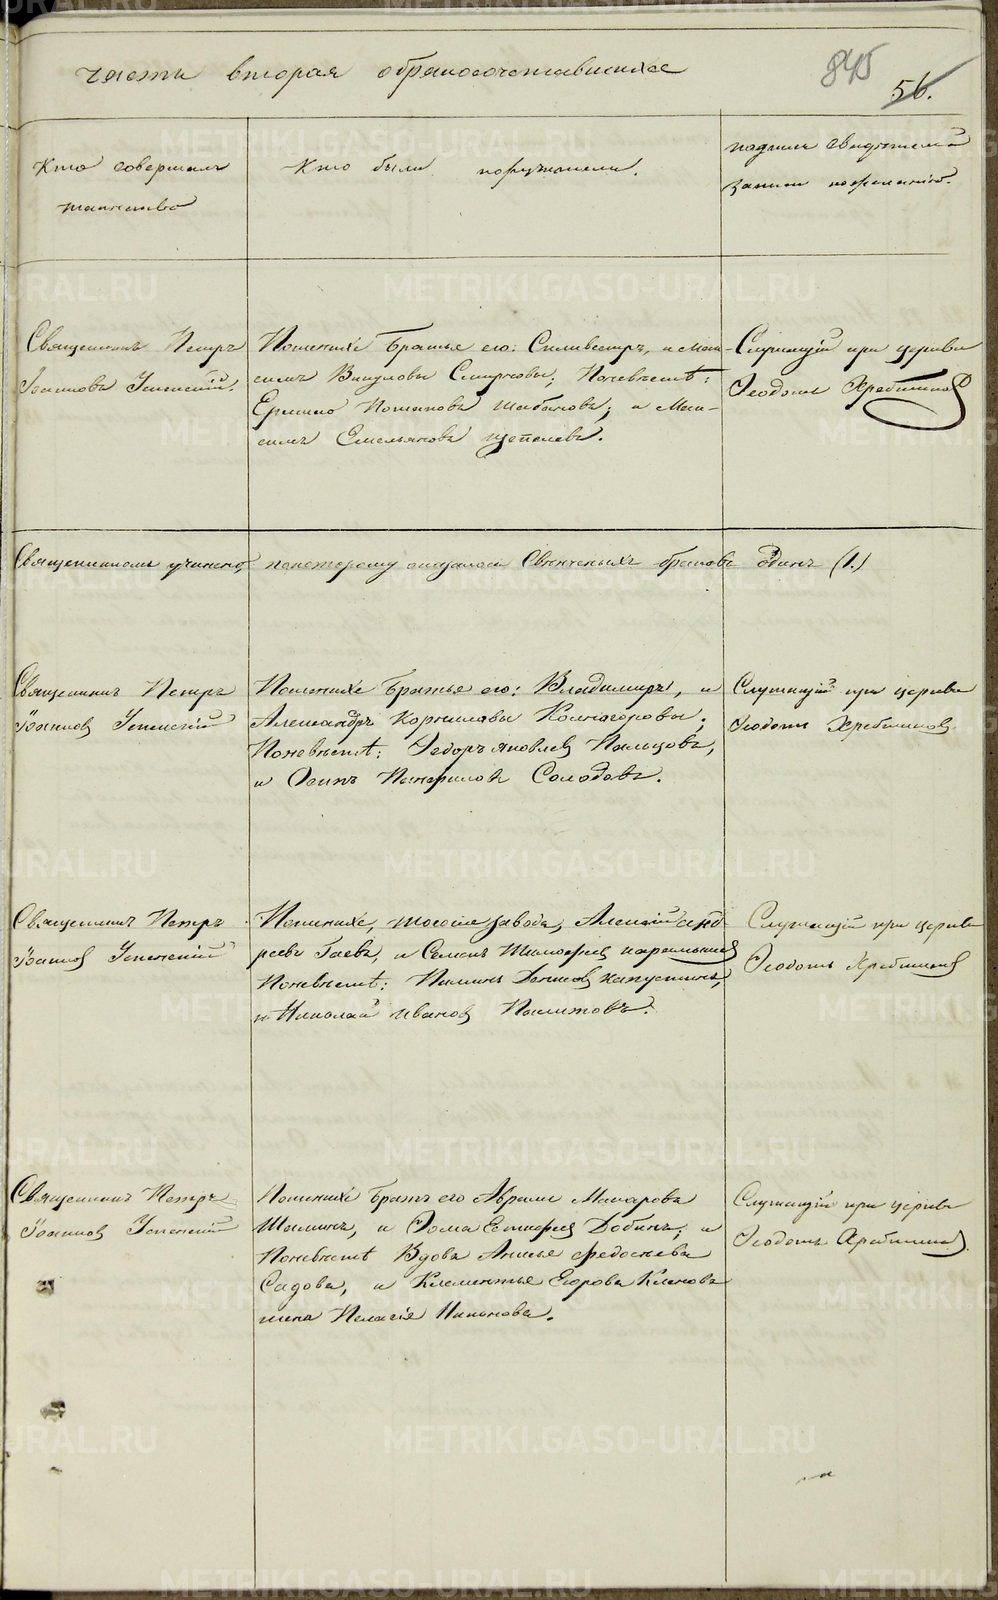 часть вторая о бракосочетавшихся
845
56.
Кто совершалъ
таинство
Кто были поручители.
подпись свидѣтелей
записи по желанію.
Священникъ Петръ
Іоанновъ Успенскій.
По женихѣ братья его: Сильвестръ, и Мак-
симъ Викуловы Смирновы; По невѣстѣ:
Ермилъ Потаповъ Шабановъ; и Мак-
симъ Емельяновъ Щепелевъ.
Служащій при церкви
Ѳеодотъ Хребтиковъ
Священникомъ учинено, по которому оказалось Свѣнченыхъ браковъ одинъ (1.)
Священникъ Петръ
Іоанновъ Успенскій
По женихѣ братья его: Владимиръ, и
Александръ Корниловы Колногоровы;
По невѣстѣ: Ѳедоръ Яковлевъ Пальцовъ,
и Осипъ Панфиловъ Солодовъ.
Служащій при церкви
Ѳеодотъ Хребтиковъ
Священникъ Петръ
Іоанновъ Успенскій
По женихѣ, тогоже завода, Алексѣй Андре-
реевъ Гаевъ, и Семенъ Тимофеевъ
По невѣстѣ: Пименъ Денисовъ Капустинъ,
и Николай Ивановъ
Служащій при церкви
Ѳеодотъ Хребтиковъ
Священникъ Петръ
Іоанновъ Успенскій
По женихѣ братъ его Абрамъ Макаровъ
Шилинъ, и Ѳома Естифеевъ Бобинъ; и
По невѣстѣ Вдова Анисья Федосѣева
Садова, и Клементья Егорова Кленова
жена Пелагія Никонова.
Служащій при церкви
Ѳеодотъ Хребтиковъ
METRIKI.GASO-URAL.RU